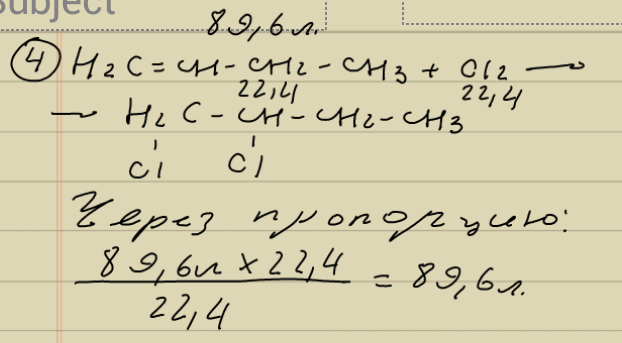 Subject
89,6 л.
④ H₂C = CH - CH₂ - CH₃ + Cl₂ →
22,4 22,4
→ H₂C - CH - CH₂ - CH₃
Cl Cl
Через пропорцию:
89,6л × 22,4
22,4
= 89,6 л.